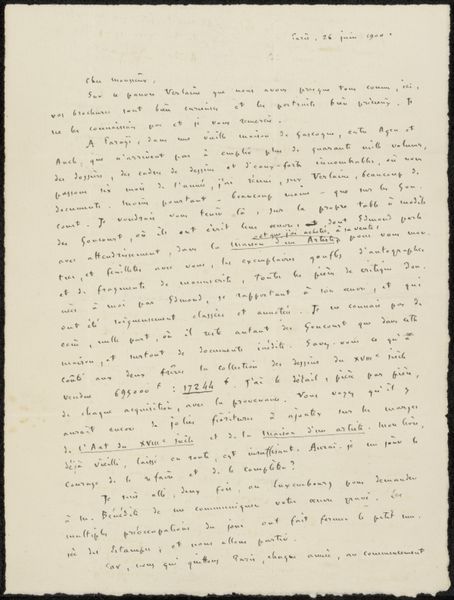 Paris, 26 juin 1900.
Cher monsieur,
Sur ce pauvre Verlaine que nous avons presque tous connu, ici,
vos brochures sont bien curieuses et les portraits bien précieux. Je
ne les connaissais pas et je vous remercie.
A Farays, dans une vieille maison de Gascogne, entre Agen et
Auch, que n'arrivent pas à emplir plus de quarante mille volumes,
des dossiers, des cadres de dessins et d'eaux-fortes innombrables, où nous
passons six mois de l'année, j'ai réuni, sur Verlaine, beaucoup de
documents. Moins pourtant – beaucoup moins – que sur les Gon-
court. Je voudrais vous tenir là, sur la propre table à modèle
des Goncourt, où ils ont écrit leur œuvre, dont Edmond parle
et que j'ai achetée, à sa vente
avec attendrissement, dans la Maison d'un Artiste, pour vous mon-
trer, et feuilleter avec vous, les exemplaires gonflés d'autographes
et de fragments de manuscrits. Toutes les pièces de critique don-
nées à moi par Edmond, se rapportant à son œuvre, et qui
ont été soigneusement classées et annotées. Je ne connais pas de
coin, nulle part, où il reste autant des Goncourt que dans cette
maison, et surtout de documents inédits. Savez-vous ce qu'a
coûté aux deux frères la collection des dessins du XVIIIe siècle
vendue 695000 f : 17244 f. J'ai le détail, pièce par pièce,
de chaque acquisition, avec la provenance. Vous voyez qu'il y
aurait encore de jolies fioritures à ajouter sur les marges
de l'Art du XVIIIe siècle et de la Maison d'un artiste. Mon livre,
déjà vieilli, laissé en route, est insuffisant. Aurai-je un jour le
courage de le refaire et de le compléter?
Je suis allé, deux fois, au Luxembourg pour demander
à M. Bénédite de me communiquer votre œuvre gravé. Les
multiples préoccupations du jour ont fait fermer le petit mu-
sée des Estampes; et nous allons partir.
Car, nous qui quittons Paris, chaque année, au commencement